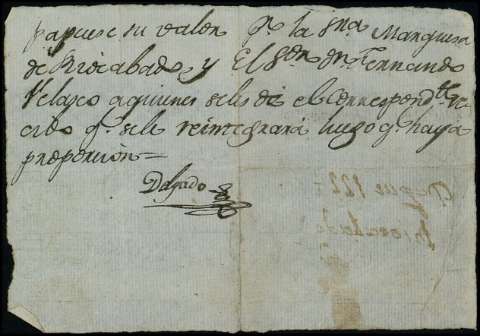 papuse su valor pr la Sra Marquesa
de Riocabado, y El Sor Dn Fernando
Velasco a quienes seles dió el Correspondte re
cibo qe sele reintegrará luego q haya
proporcion =
Delgado